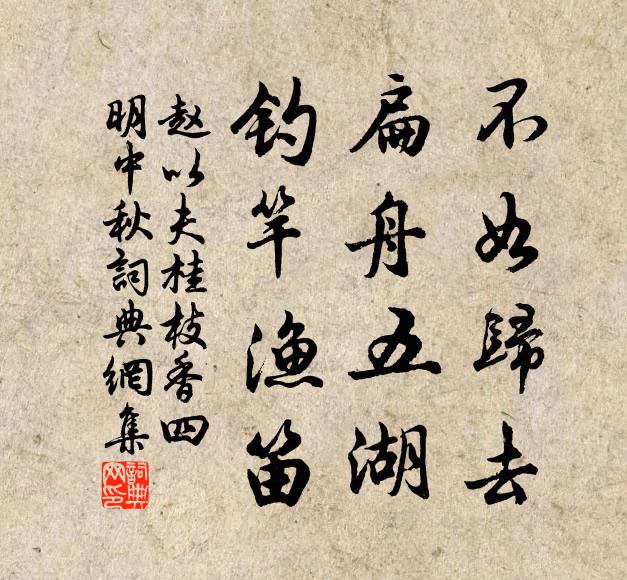 不如歸去
扁舟五湖
釣竿漁笛
赵以夫桂枝香四
明中秋詞典網集
詞典
网印